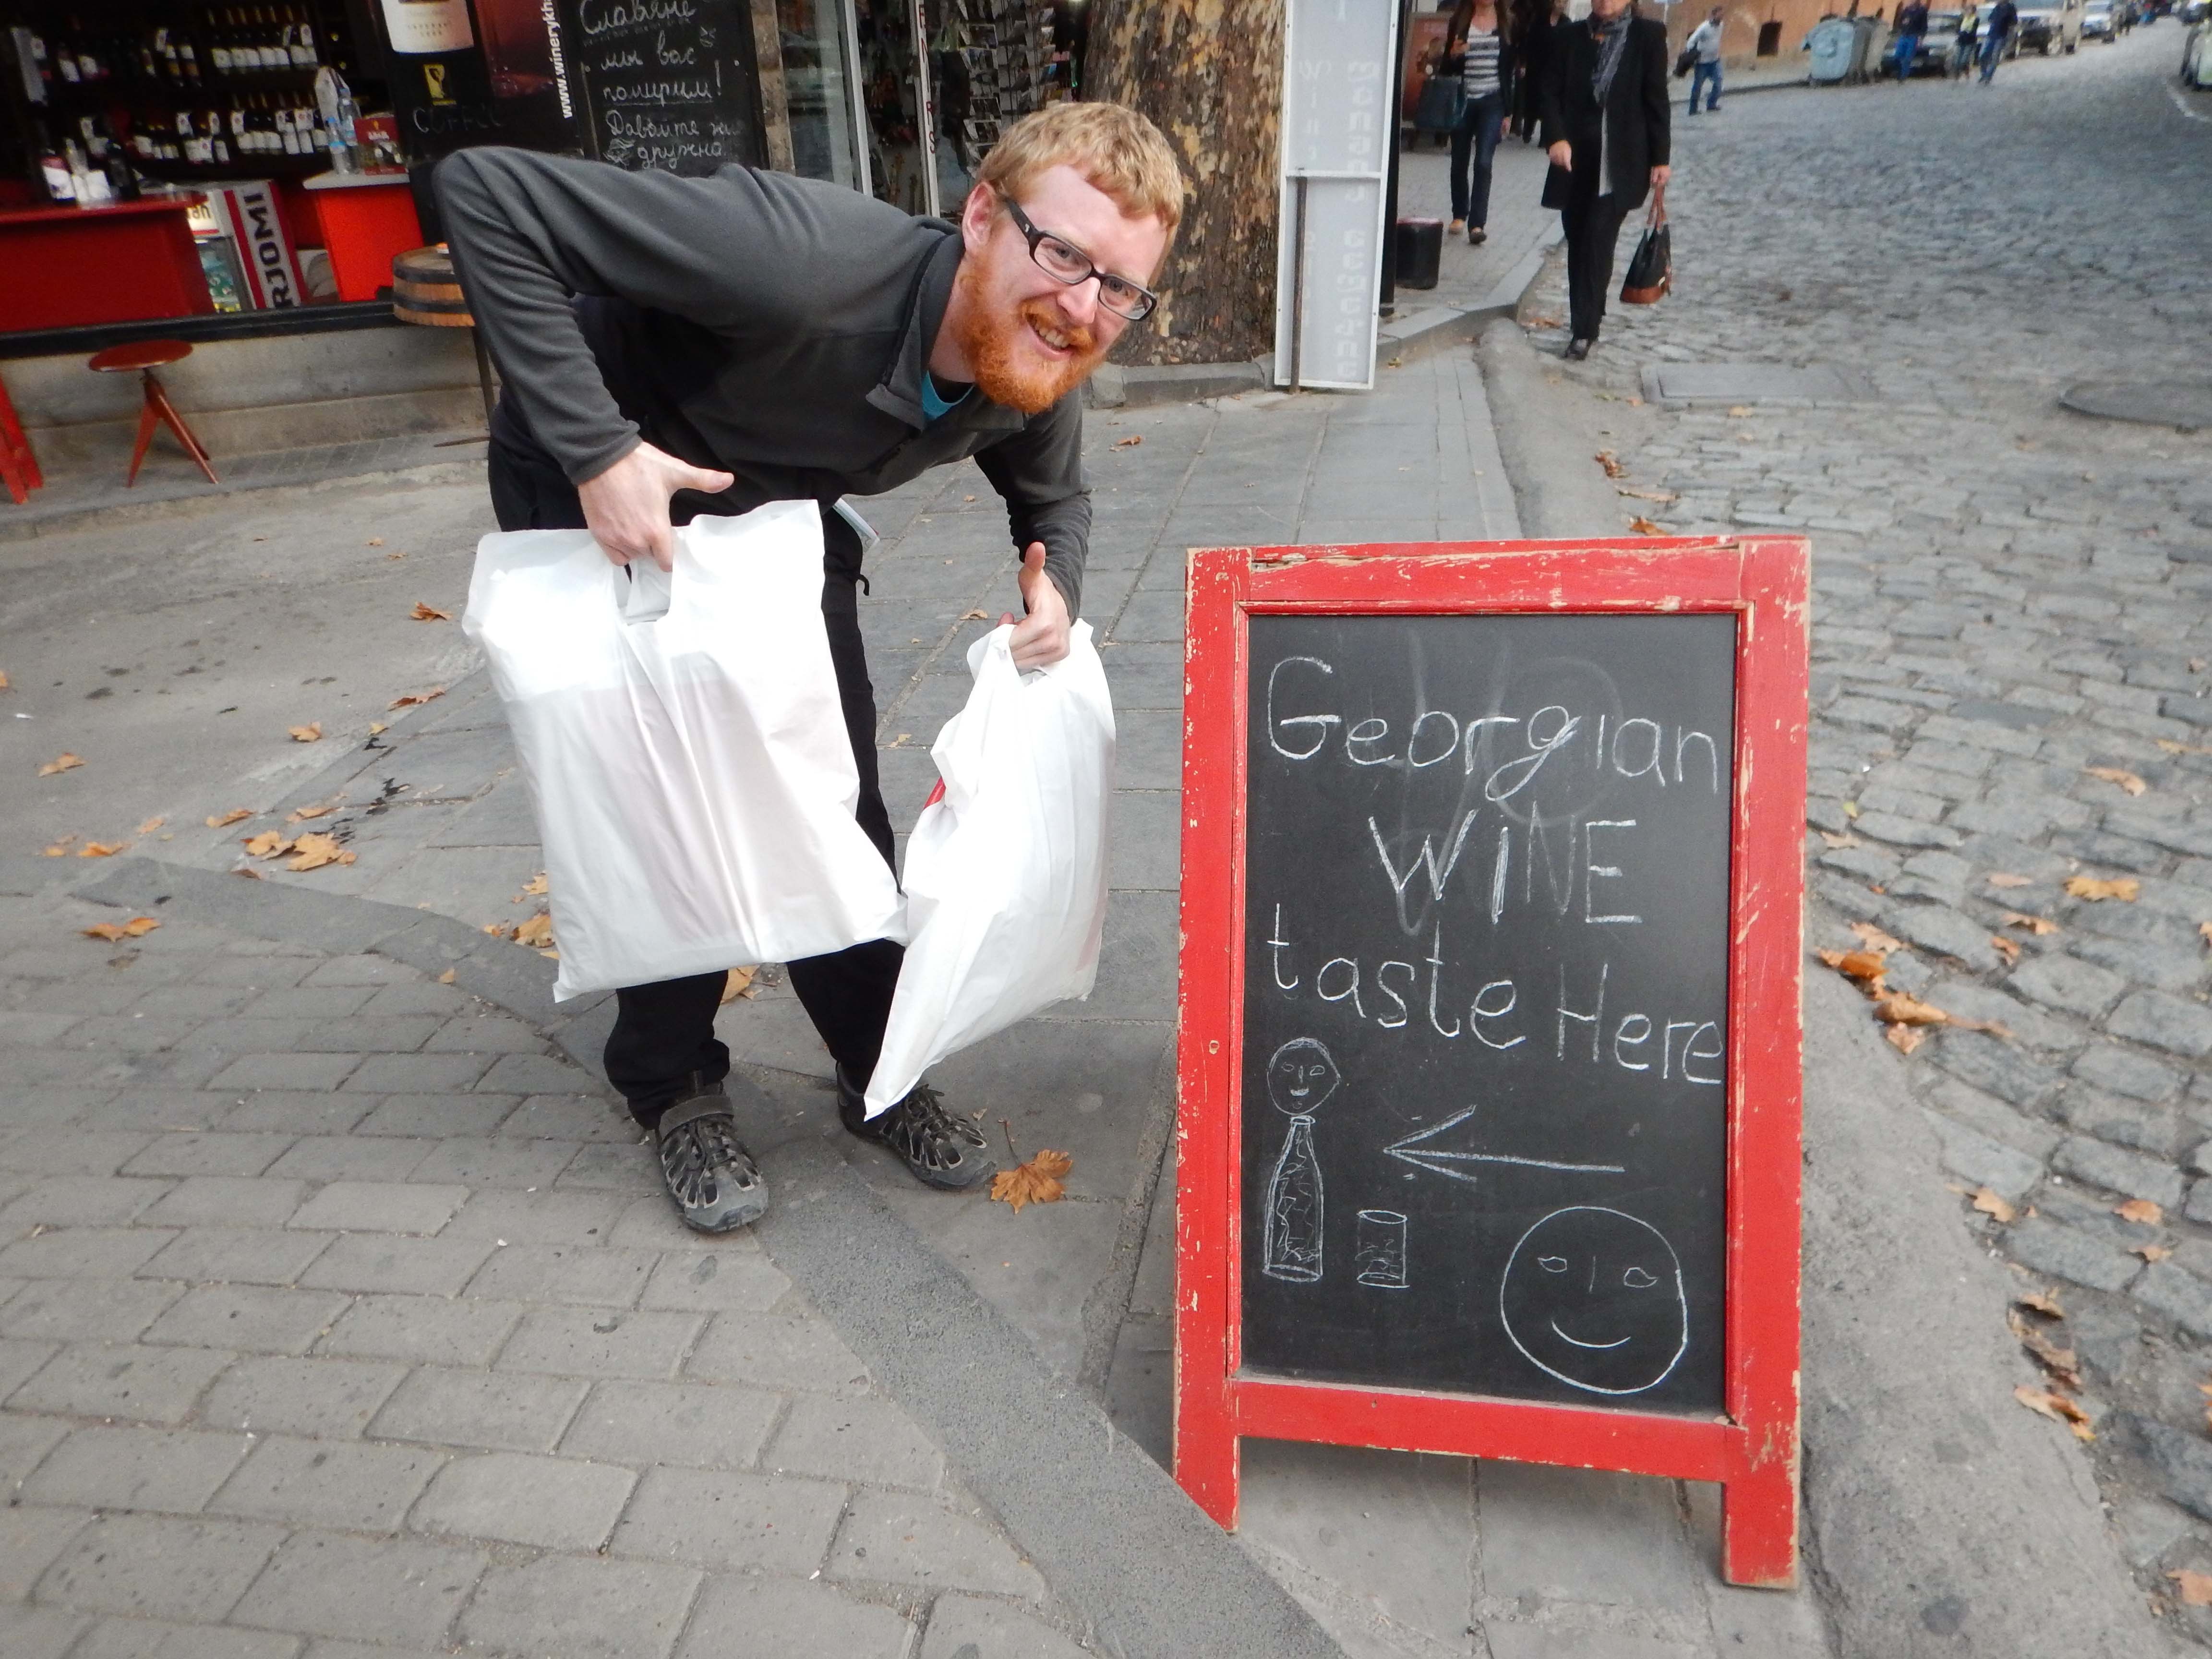 www.winerykh
Славяне
мы вас
помирим!
Давайте жи
дружно.
COFFEE
RJOMI
Georgian
WiNE
taste Here